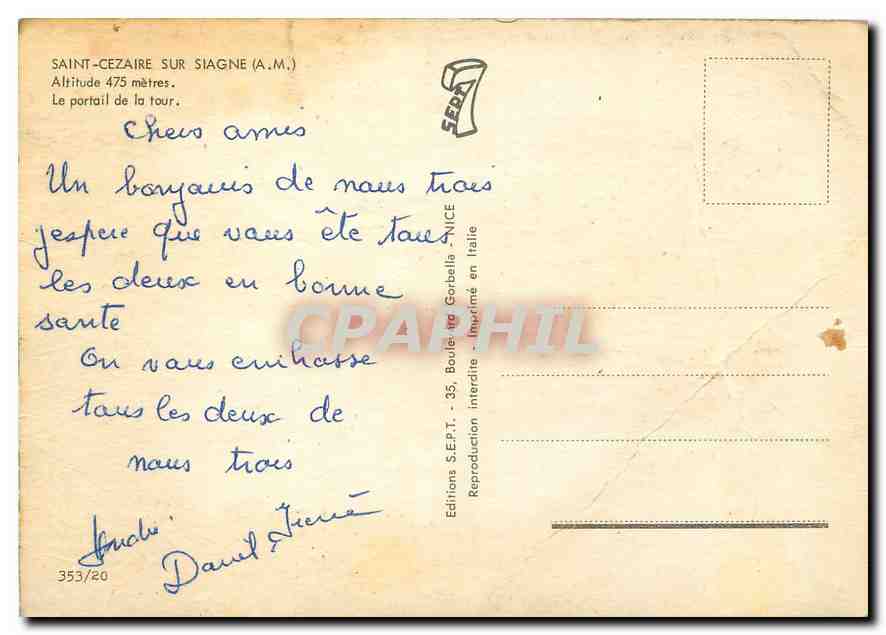 SAINT-CEZAIRE SUR SIAGNE (A.M.)
Altitude 475 mètres.
Le portail de la tour.
SEPT
Chers amis
Un bonjours de nous trois
jespere que vous ête tous
les deux en bonne
sante
On vous embrasse
tous les deux de
nous trois
André.
Daniel
353/20
Editions S.E.P.T. - 35, Boulevard Gorbella - NICE
Reproduction interdite - Imprimé en Italie
CPAPHIL